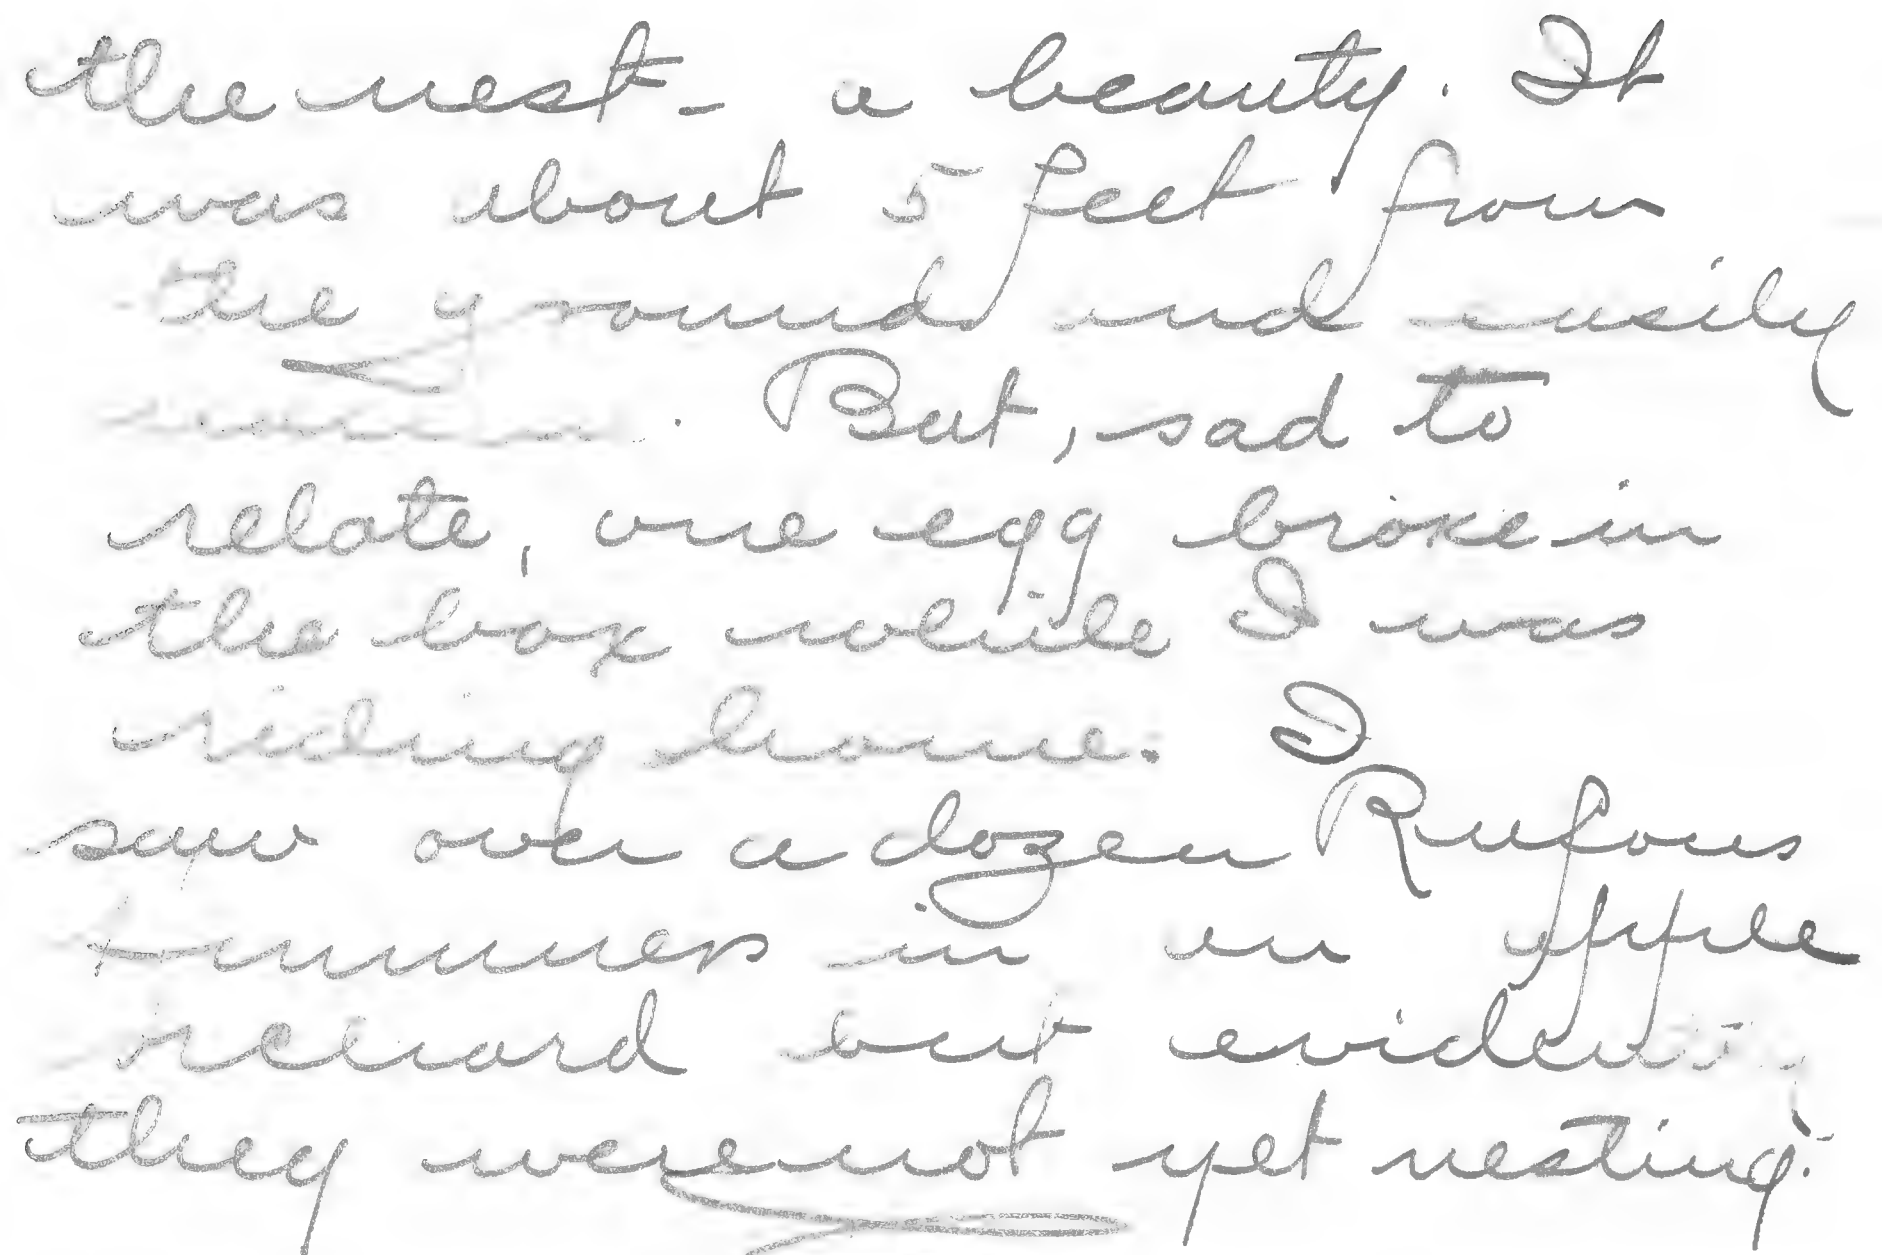 the nest - a beauty. It
was about 5 feet from
the ground and easily
But, sad to
relate, one egg broke in
the box while I was
riding home. I
saw over a dozen Rufous
hummers in an apple
orchard but evidently
they were not yet nesting.